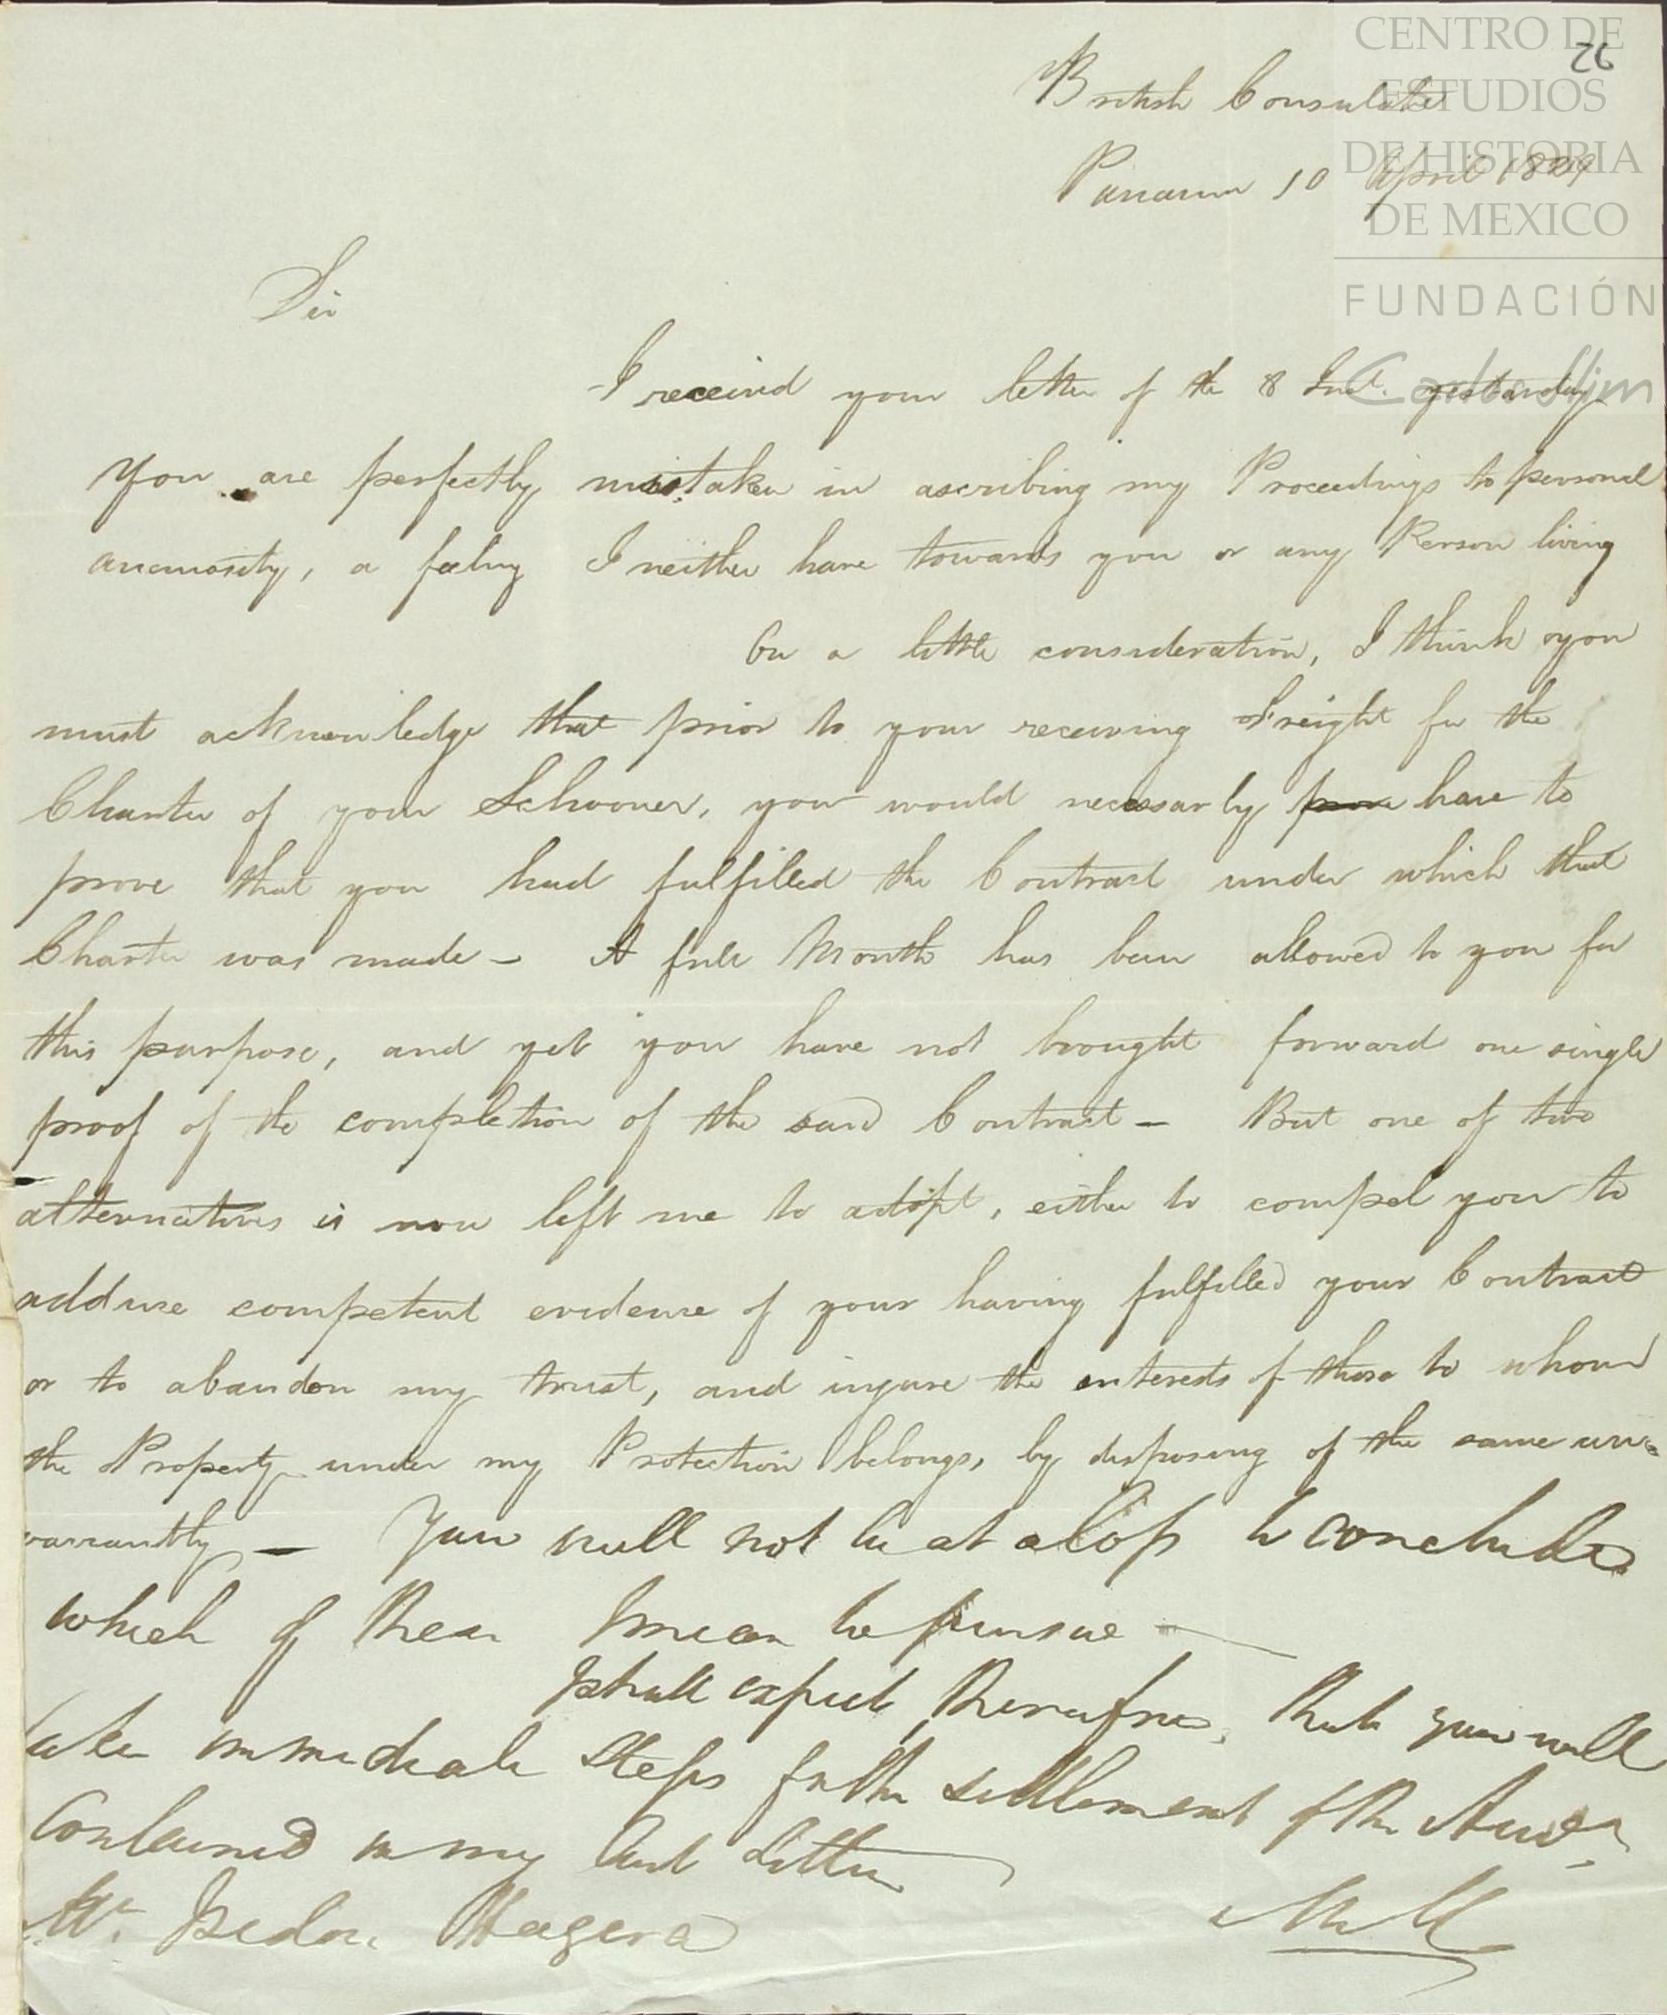 CENTRO DE
ESTUDIOS
DE HISTORIA
DE MEXICO
FUNDACIÓN
Carlos Slim
26
British Consulate
Panama 10 April 1829
Sir
I received your letter of the 8 Inst. yesterday
You are perfectly mistaken in ascribing my Proceedings to personal
animosity, a feeling I neither have towards you or any Person living
On a little consideration, I think you
must acknowledge that prior to your receiving Freight for the
Charter of your Schooner, you would necessarily prove have to
prove that you had fulfilled the Contract under which that
Charter was made – A full Month has been allowed to you for
this purpose, and yet you have not brought forward one single
proof of the completion of the said Contract – But one of two
alternatives is now left me to adopt, either to compel you to
adduce competent evidence of your having fulfilled your Contract
or to abandon my trust, and injure the interests of those to whom
the Property under my Protection belongs, by disposing of the same un=
warrantly – You will not be at a loss to conclude
which of them I mean to pursue –
I shall expect, therefore, that you will
take immediate steps for the settlement of the
Contained in my last letter
Mr. Isidore